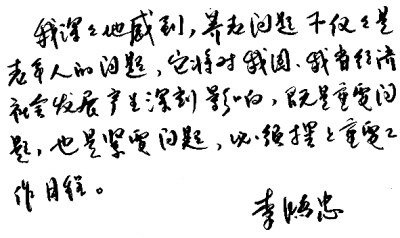 我深深地感到，养老问题不仅仅是
老年人的问题，它将对我国、我省经济
社会发展产生深刻影响，既是重要问
题，也是紧要问题，必须摆上重要工
作日程。
李 忠